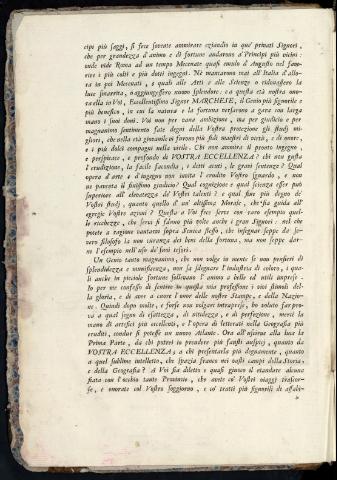 cipi più saggi, si fece sovente ammirare eziandio in que' privati Signori,
che per grandezza d'animo e di fortune andarono a' Principi più vicini:
onde vide Roma ad un tempo Mecenate quasi emulo d'Augusto nel favo-
rire i più colti e più dotti ingegni. Nè mancarono mai all'Italia d'allo-
ra in poi Mecenati, i quali alle Arti e alle Scienze o riducessero la
luce smarrita, o aggiungessero nuovo splendore: ed a questa età nostra on-
ora in Voi, Eccellentissimo Signor MARCHESE, il Genio più signorile e
più benefico, in cui la natura e la fortuna versarono a gara con larga
mano i suoi doni. Voi non per vana ambizione, ma per giusticia e per
magnanimo sentimento fate degni della Vostra protezione gli studj mi-
gliori, che nella età giovanile vi furono più fidi maestri di virtù, e di onore,
e i più dolci compagni nella virile. Chi non ammira il pronto ingegno
e perspicace, e profondo di VOSTRA ECCELLENZA? chi non gusta
l'erudizione, la facile facondia, i detti acuti, le gravi sentenze? Qual
opera d'arte o d'ingegno non invita l'erudito Vostro sguardo, e non
ne paventa il finissimo giudicio? Qual cognizione e qual scienza esser può
superiore all'elevatezza de' Vostri talenti? e qual fine più degno de'
Vostri studj, quanto quello d'un'altissima Morale, che sia guida all'
egregie Vostre azioni? Questa a Voi fece scerre con raro esempio quel-
le ricchezze, che sorsi fanno più volte anche i gran Signori: nel che
potete a ragione vantarvi sopra Seneca stesso, che insegnar seppe da se-
vero filosofo la non curanza dei beni della fortuna, ma non seppe dar-
ne l'esempio nell'uso de' suoi tesori.
Un Genio tanto magnanimo, che non volge in mente se non pensieri di
splendidezza e munificenza, non fa sdegnare l'industria di coloro, i qua-
li anche in picciole fortune sollevano l'animo a belle ed utili imprese.
Io per me confesso di sentire in questa mia professione i vivi stimoli del-
la gloria, e di aver a cuore l'onor delle nostre Stampe, e della Nazio-
ne. Quindi dopo molte, e forse non volgari intraprese, ho voluto far pro-
va a qual segno di esattezza, di nitidezza, e di perfezione, mercè la
mano di artefici più eccellenti, e l'opera di letterati nella Geografia più
eruditi, condur si potesse un nuovo Atlante. Ora all'uscirne alla luce la
Prima Parte, da chi poteví io prendere più fausti auspicj, quanto da
VOSTRA ECCELLENZA; a chi presentarla più degnamente, quanto
a quel sublime intelletto, che spazia franco nei vasti campi della Storia,
e della Geografia? A Voi sia diletto e quasi giuoco il riandare alcuna
fiata con l'occhio tante Provincie, che avete co' Vostri viaggi trascor-
se, e onorate col Vostro soggiorno, e co' tratti più signorili di affabi-